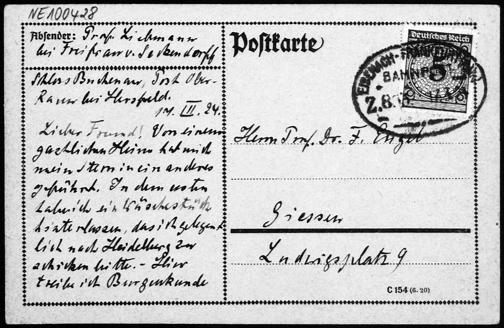 NE100428
Absender: Prof. Liebmann
bei Freifrau v. Seckendorff
Schloss Buchenau, Post Ober-
bei Hersfeld.
14. III. 24.
Lieber Freund! Von einem
gastlichen Heim hat mich
mein Stern in ein anderes
geführt. In dem ersten
habe ich ein Wäschestück
hinterlassen, das ich gelegent
lich nach Heidelberg zu
schicken bitte. – Hier
treibe ich Burgenkunde
Postkarte
Deutsches Reich
5
BAHNPOST
Herrn Prof. Dr. F. Engel
Giessen
Ludwigsplatz 9
C 154 (6. 20)